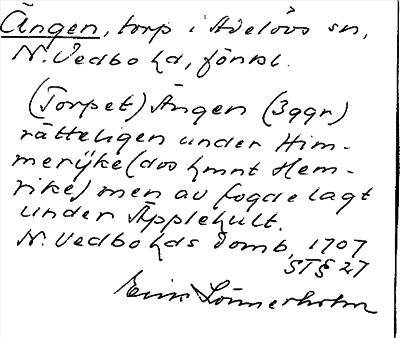 Ängen, torp i Adelövs sn,
N. Vedbo hd, Jönkl.
(Torpet) Ängen (3 ggr)
rätteligen under Him-
merijke (dos hmnt Hem-
rike) men av fogde lagt
under Äpplehult.
N. Vedbo hds domb, 1707
ST § 27
Lönnerholm